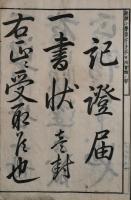 記證届
一書状壱封
右正ニ受取候也